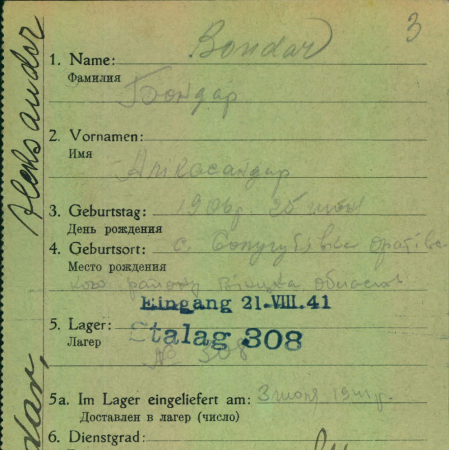 3
Bondar
1. Name:
Фамилия
Бондар
2. Vornamen:
Имя
3. Geburtstag: 1906р. 25
День рождения
4. Geburtsort: с.
Место рождения
району області
Eingang 21.VIII.41
5. Lager: Stalag 308
Лагер № 308
5a. Im Lager eingeliefert am: 3 1941р.
Доставлен в лагер (число)
6. Dienstgrad:
Aleksander